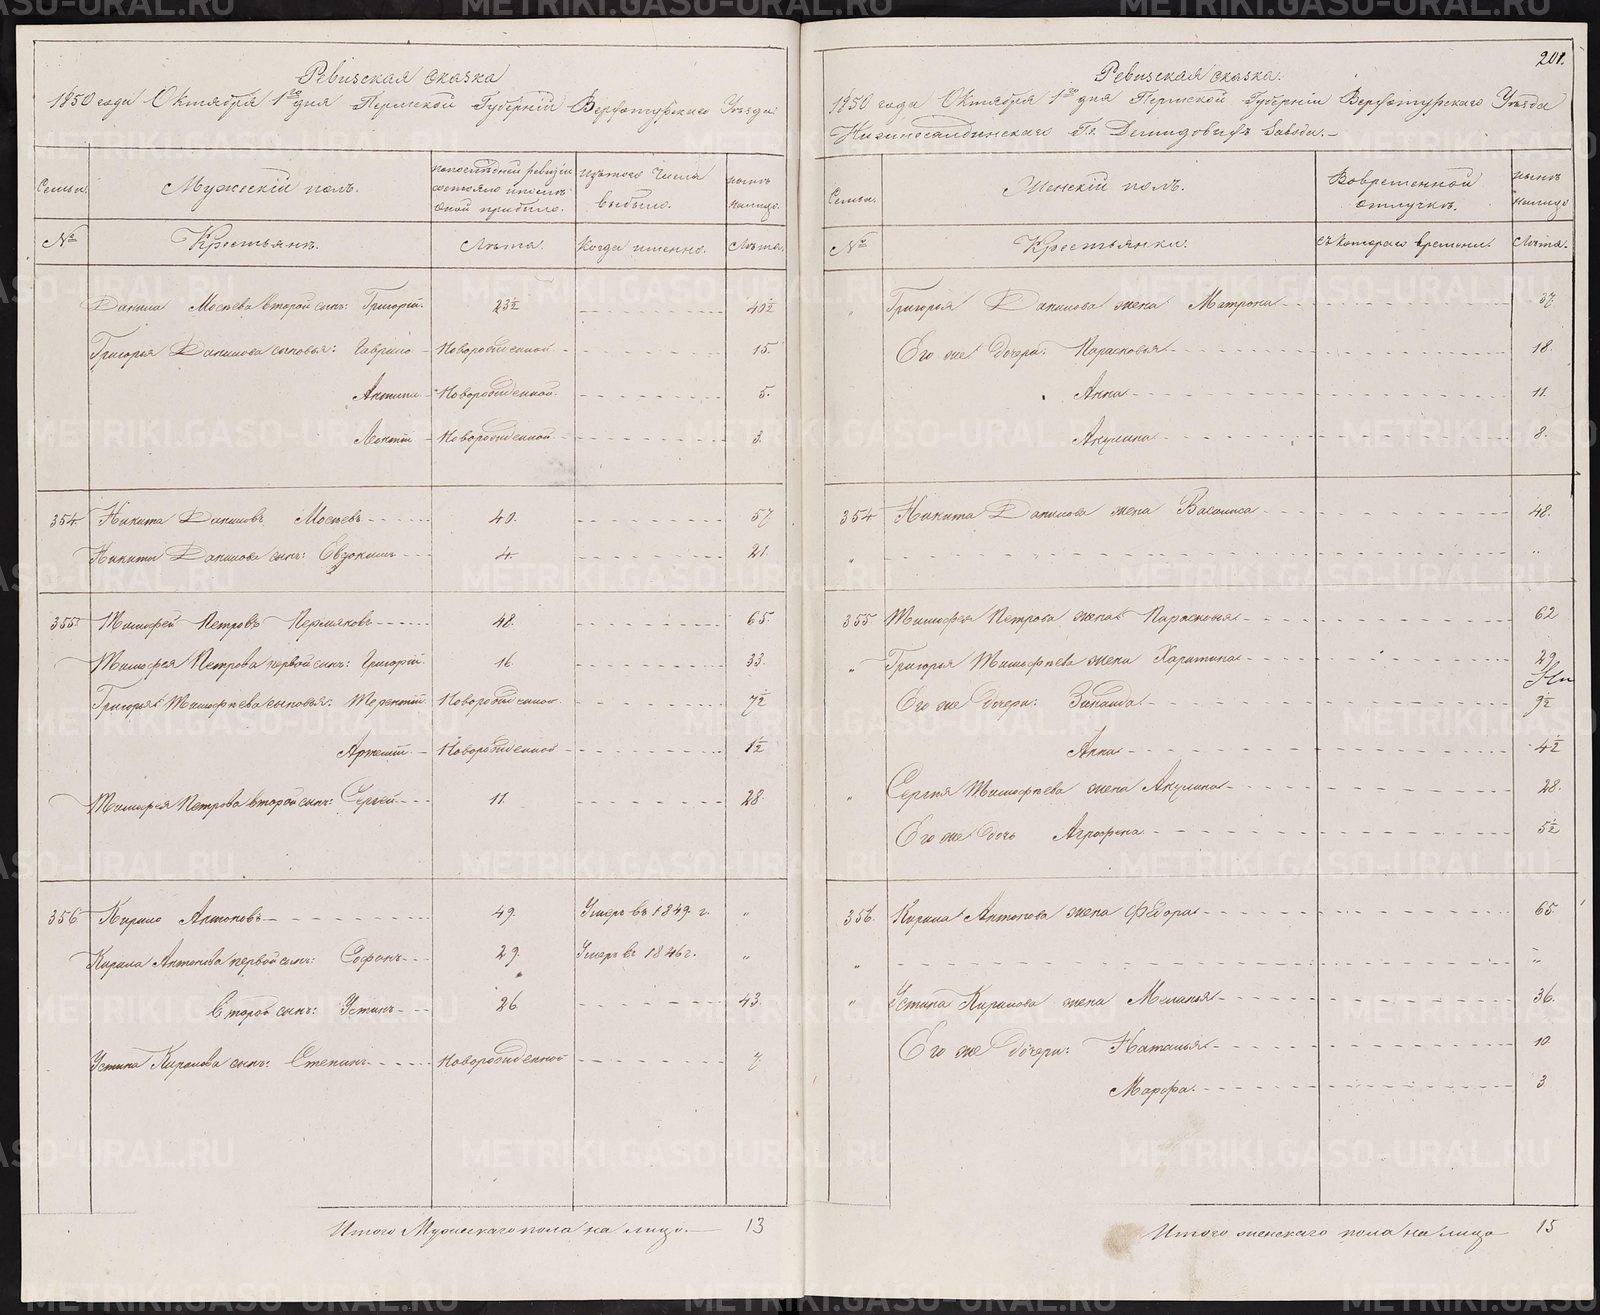 Ревизская сказка
1850 года Октября 1го дня Пермской Губерніи Верхотурскаго Уѣзда
Семьи. Мужскій полъ. изъ того числа выбыло. нынѣ на лицо.
№ Крестьянъ. Лѣта. Когда именно. Лѣта.
Данила Мосеева второй сынъ: Григорій. 23½ 40½
Григорья Данилова сыновья: Гаврило Новорожденной 15.
Антипа Новорожденной. 5.
Леонтій Новорожденной 3.
354 Никита Даниловъ Мосеевъ 40. 57
Никиты Данилова сынъ: Евдокимъ 4. 21.
355. Тимофей Петровъ Пермяковъ 48. 65.
Тимофея Петрова первой сынъ: Григорій. 16. 33.
Григорья Тимофеева сыновья: Терентій Новорожденной. 7½
Новорожденной 1½
Тимофея Петрова второй сынъ: Сергей 11. 28.
356 Кирило Антоновъ 49. Умеръ въ 1849. г. „
Кирила Антонова первой сынъ: Софонъ 29. Умеръ въ 1846 г. „
Второй сынъ: Устинъ 26 43.
Устина Кирилова сынъ: Степанъ Новорожденной 7
Итого Мужескаго пола на лицо. 13
201.
Ревизская сказка.
1850 года Октября 1го дня Пермской Губерніи Верхотурскаго Уѣзда
Нижнесалдинскаго Гг. Демидовыхъ Завода.
Семьи. Женскій полъ. Во временной отлучкѣ. нынѣ на лицо
№ Крестьянки. съ котораго времени. Лѣта.
„ Григорья Данилова жена Матрона 37.
Его же дочери: Парасковья 18.
Анна 11.
Акулина 8.
354 Никиты Данилова жена Василиса 48.
„ „
355 Тимофея Петрова жена Парасковья 62
„ Григорья Тимофеева жена Харитина 29
Его же дочери: Зинаида 9½
Анна 4½
„ Сергея Тимофеева жена Акулина 28.
Его же дочь Агрофена 5½
356. Кирила Антонова жена Федора 65.
„ „
„ Устина Кирилова жена Меланья 36.
Его же дочери: Наталья 10
Марфа. 3
Итого женскаго пола на лицо 15
METRIKI.GASO-URAL.RU